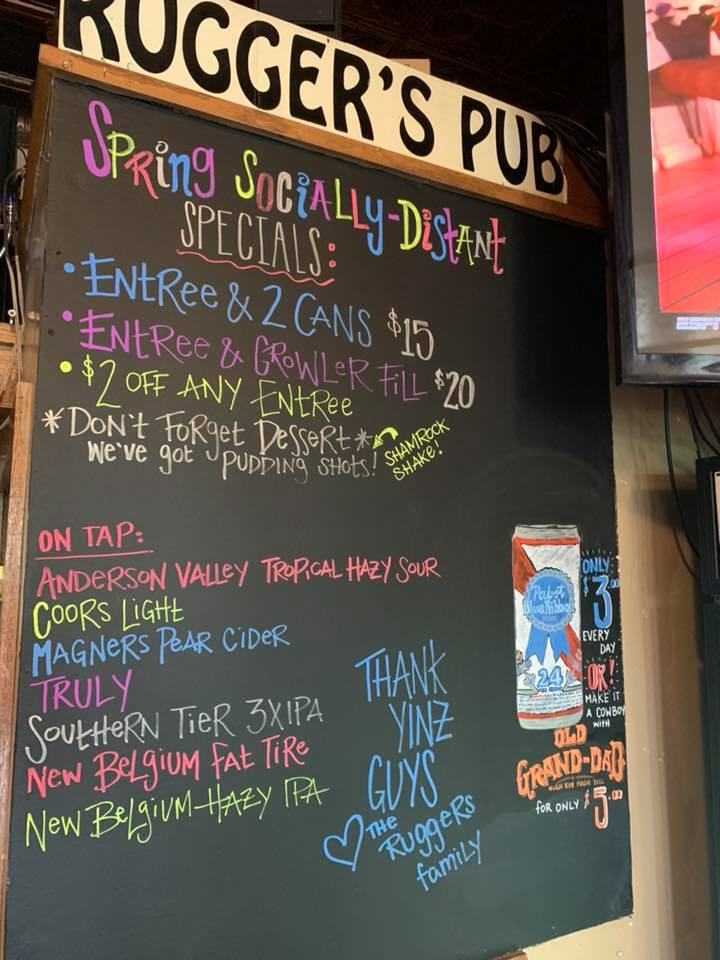 RUGGER'S PUB
SPRING SOCIALLY-DISTANT
SPECIALS:
• ENTRee & 2 CANS $15
• ENTRee & GROWLER Fill $20
• $2 OFF ANY ENTRee
*DON'T FORget DesseRt*
We've got PUDDING SHOTS!
SHAMROCK
SHAKE!
ON TAP:
ANDERSON VALLEY TROPICAL HAZY SOUR
COORS LIGHT
MAGNERS PEAR CIDER
TRULY
SOUTHERN TIER 3XIPA
New BelgiUM FAT TiRe
New BelgiUM-HAZY IPA
THANK
YINZ
GUYS
THE
RuggeRs
family
Pabst
Blue Ribbon
24
ONLY
$3.00
EVERY
DAY
OR!
MAKE IT
A COWBOY
WITH
OLD
GRAND-DAD
FOR ONLY $5.00